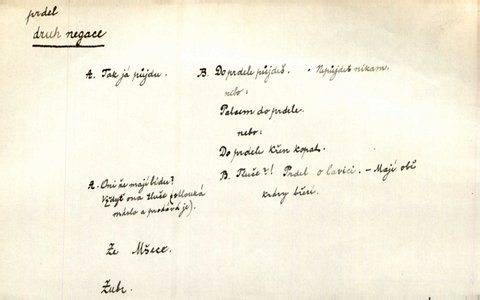 prdel
druh negace
A. Tak já půjdu. B. Do prdele půjdeš. - Nepůjdeš nikam.
nebo:
Palcem do prdele.
nebo:
Do prdele křen kopat.
A. Oni že mají bídu? B. Tluče?! Prdel o lavici. - Mají obě
Vždyť ona tluče (stlouká krávy březí.
máslo a prodává je).
Ze Mšece.
Žubr.